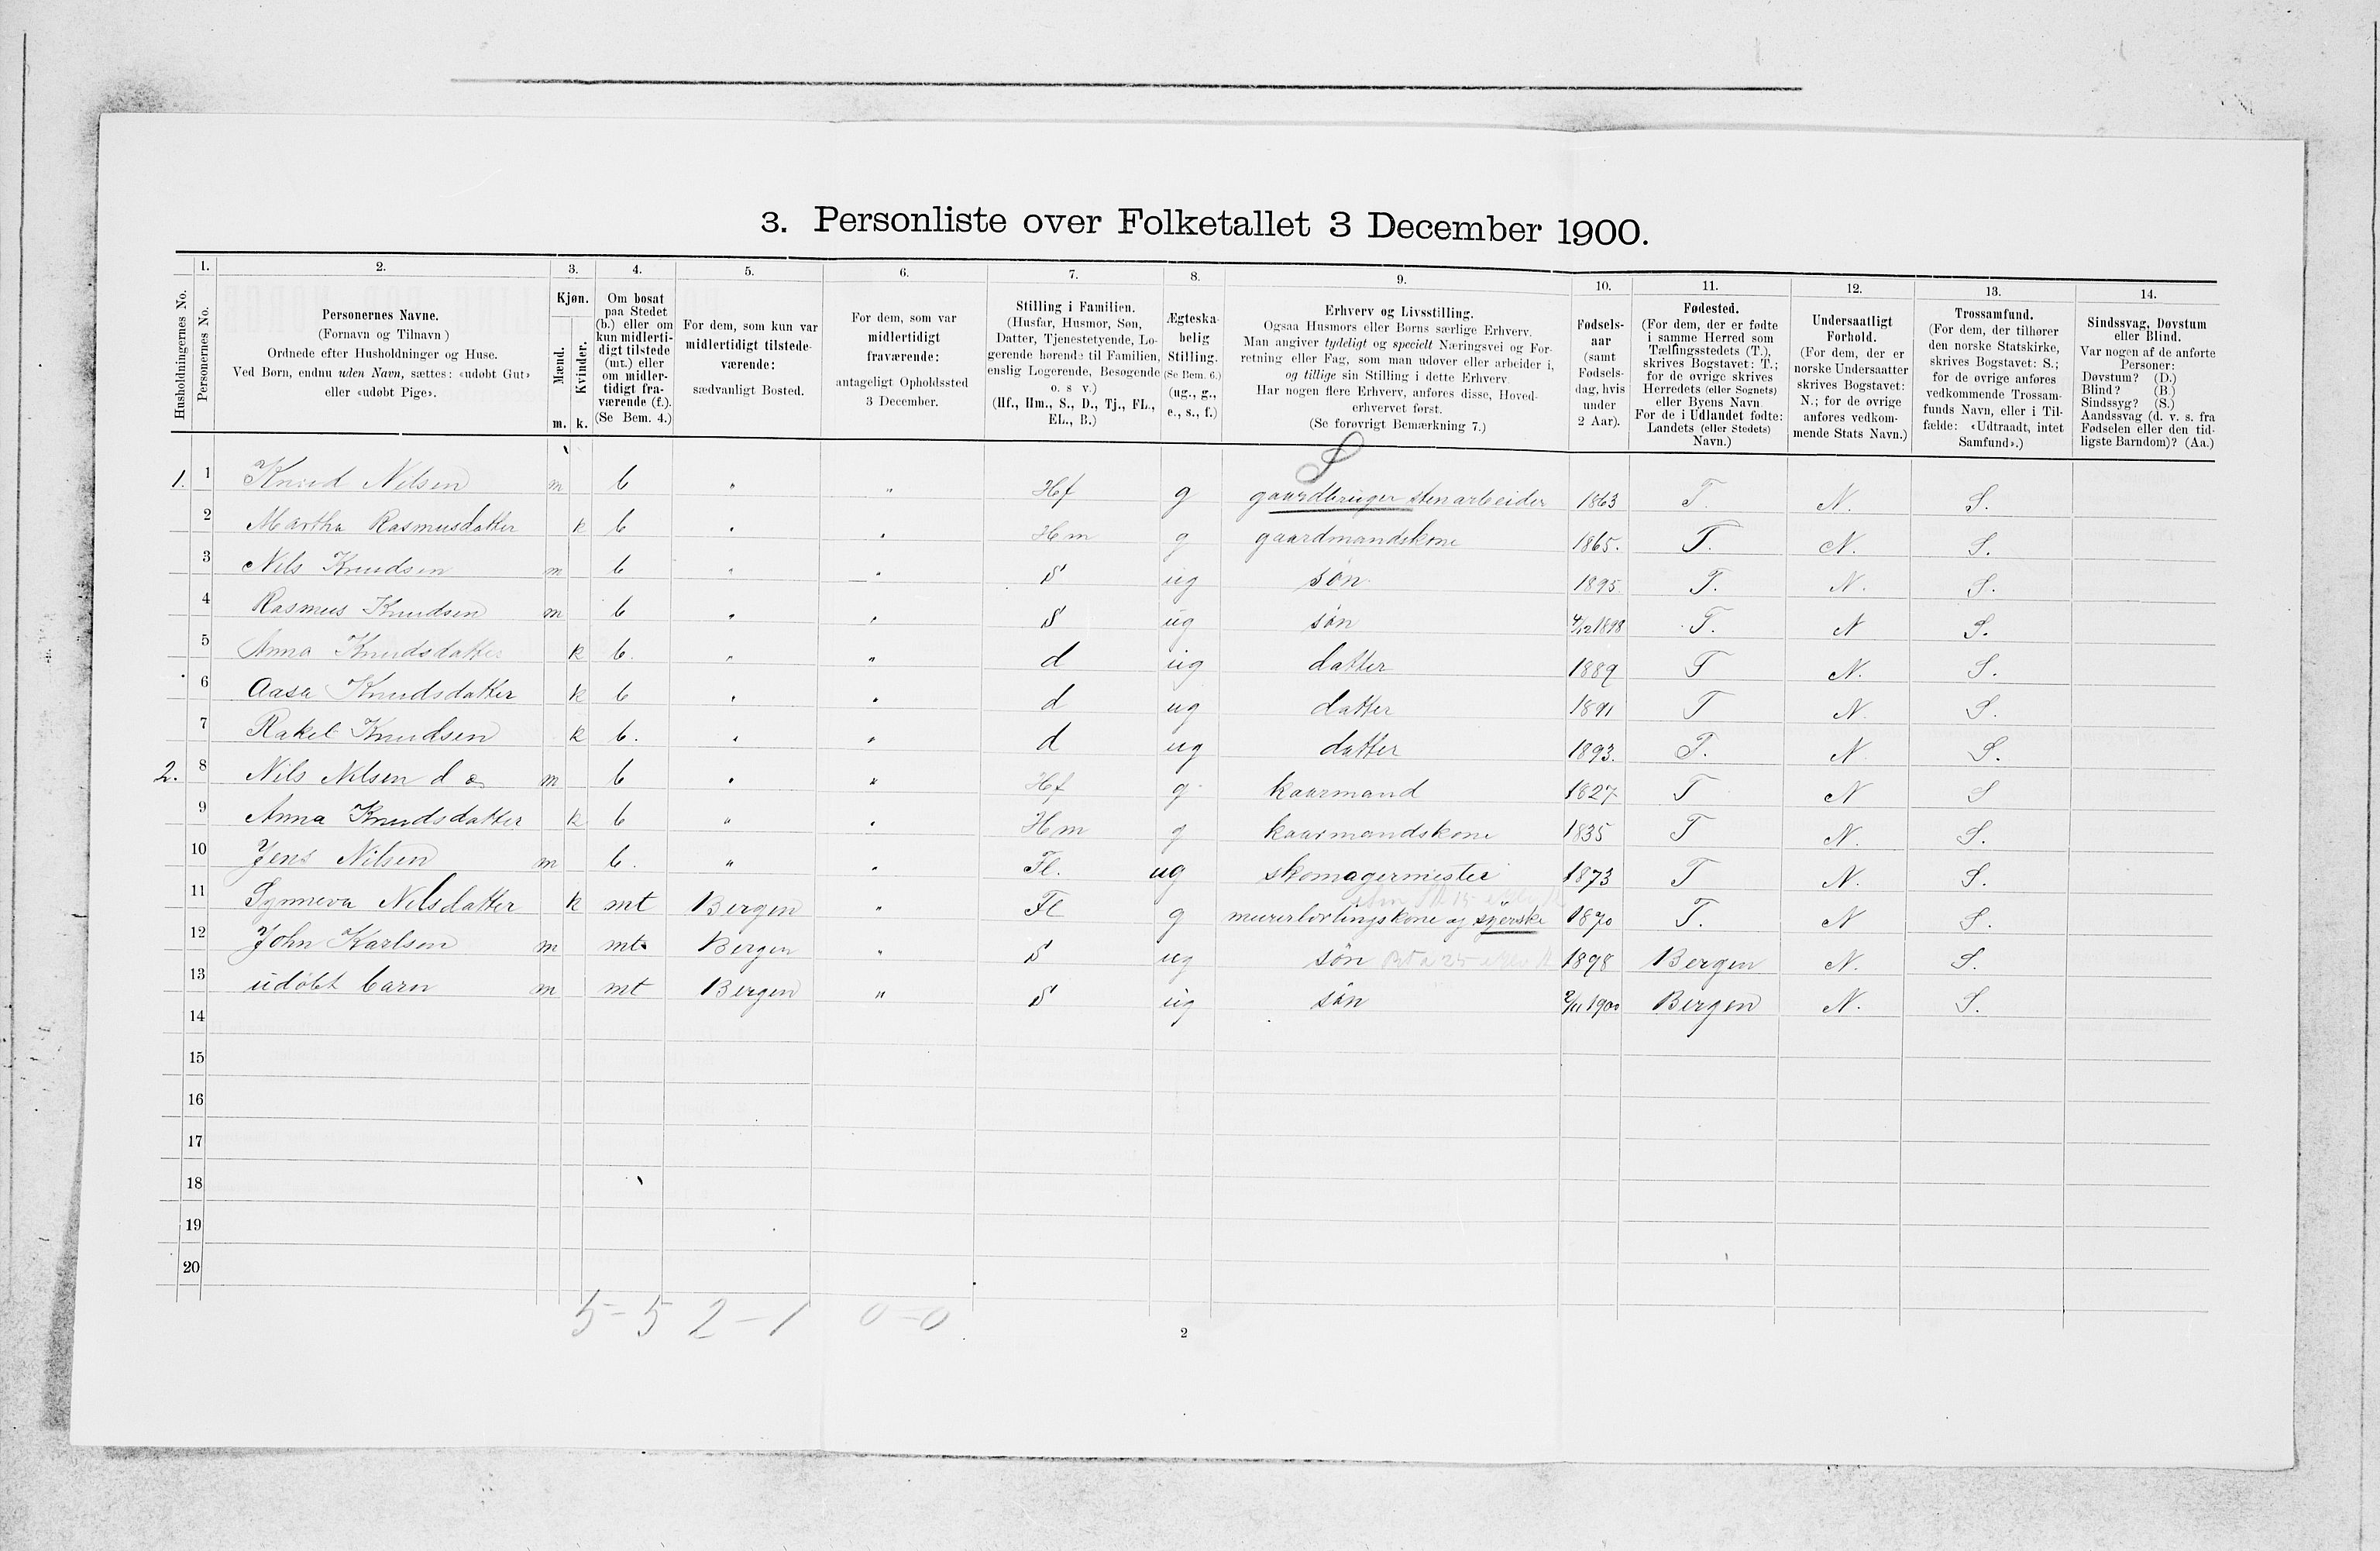 3. Personliste over Folketallet 3 December 1900.
Husholdningernes No.
1. Personernes No.
2. Personernes Navne.
(Fornavn og Tilnavn)
Ordnede efter Husholdninger og Huse.
Ved Børn, endnu uden Navn, sættes: «udøbt Gut»
eller «udøbt Pige».
3. Kjøn.
Mænd. m.
Kvinder. k.
4. Om bosat
paa Stedet
(b.) eller om
kun midlerti-
digt tilstede
(mt.) eller
om midler-
tidigt fra-
værende (f.).
(Se Bem. 4.)
5. For dem, som kun var
midlertidigt tilstede-
værende:
sædvanligt Bosted.
6. For dem, som var
midlertidigt
fraværende:
antageligt Opholdssted
3 December.
7. Stilling i Familien.
(Husfar, Husmor, Søn,
Datter, Tjenestetyende, Lo-
gerende hørende til Familien,
enslig Logerende, Besøgende
o. s v.)
(Hf., Hm., S., D., Tj., FL.,
EL., B.)
8. Ægteska-
belig
Stilling.
(Se Bem. 6.)
(ug., g.,
e., s., f.)
9. Erhverv og Livsstilling.
Ogsaa Husmors eller Børns særlige Erhverv.
Man angiver tydeligt og specielt Næringsvei og For-
retning eller Fag, som man udøver eller arbeider i,
og tillige sin Stilling i dette Erhverv.
Har nogen flere Erhverv, anføres disse, Hoved-
erhvervet først.
(Se forøvrigt Bemærkning 7.)
10. Fødsels-
aar
(samt
Fødsels-
dag, hvis
under
2 Aar).
11. Fødested.
(For dem, der er fødte
i samme Herred som
Tællingsstedets (T.),
skrives Bogstavet: T.;
for de øvrige skrives
Herredets (eller Sognets)
eller Byens Navn
For de i Udlandet fødte:
Landets (eller Stedets)
Navn.)
12. Undersaatligt
Forhold.
(For dem, der er
norske Undersaatter
skrives Bogstavet:
N.; for de øvrige
anføres vedkom-
mende Stats Navn.)
13. Trossamfund.
(For dem, der tilhører
den norske Statskirke,
skrives Bogstavet: S.;
for de øvrige anføres
vedkommende Trossam-
funds Navn, eller i Til-
fælde: «Udtraadt, intet
Samfund».)
14. Sindssvag, Døvstum
eller Blind.
Var nogen af de anførte
Personer:
Døvstum? (D.)
Blind? (B.)
Sindssyg? (S.)
Aandssvag (d. v. s. fra
Fødselen eller den tid-
ligste Barndom)? (Aa.)
S
1. 1 Knud Nilsen m b " " Hf g gaardbruger stenarbeider 1863 T. N. S.
2 Martha Rasmusdatter k b " " Hm g gaardmandskone 1865. T. N. S.
3 Nils Knudsen m b " " S ug søn 1895 T. N. S.
4 Rasmus Knudsen m b " " S ug søn 4/12 1898 T. N S.
5 Anna Knudsdatter k b. " " d ug datter 1889 T N. S.
6 Aasa Knudsdatter k b " " d ug datter 1891 T N. S.
7 Rakel Knudsen k b. " " d ug datter 1893. T. N S.
2. 8 Nils Nilsen d æ m b " " Hf g kaarmand 1827 T N S
9 Anna Knudsdatter k b " " Hm g kaarmandskone 1835 T N. S.
10 Jens Nilsen m b. " " Fl. ug skomagermester 1873 T N. S.
11 Synneva Nilsdatter k mt Bergen " Fl g murerlærlingskone og syerske 1870 T. N S.
12 John Karlsen m mt Bergen " S ug søn 1898 Bergen N. S.
13 udøbt barn m mt Bergen " S ug søn 2/11 1900 Bergen N. S.
14
15
16
17
18
19
20
5-5 2-1 0-0
2